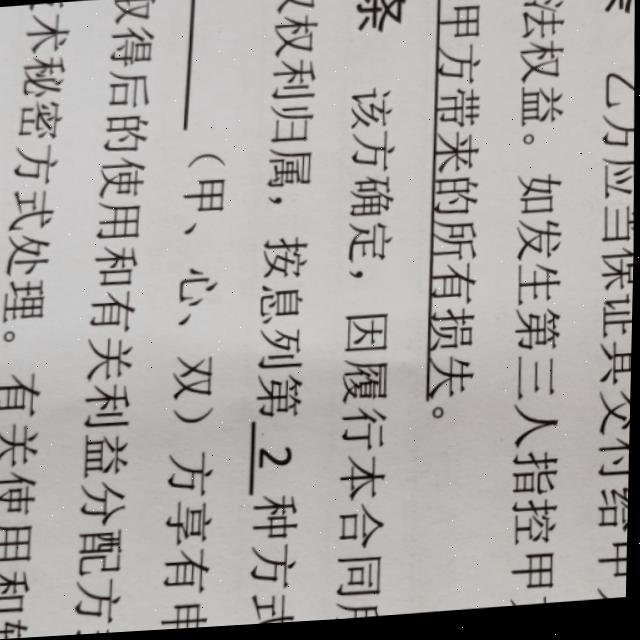 乙方应当保证其交付给甲
法权益。如发生第三人指控甲
甲方带来的所有损失。
条 该方确定，因履行本合同
权利归属，按息列第 2 种方式
（甲、心、双）方享有申
取得后的使用和有关利益分配方
术秘密方式处理。有关使用和